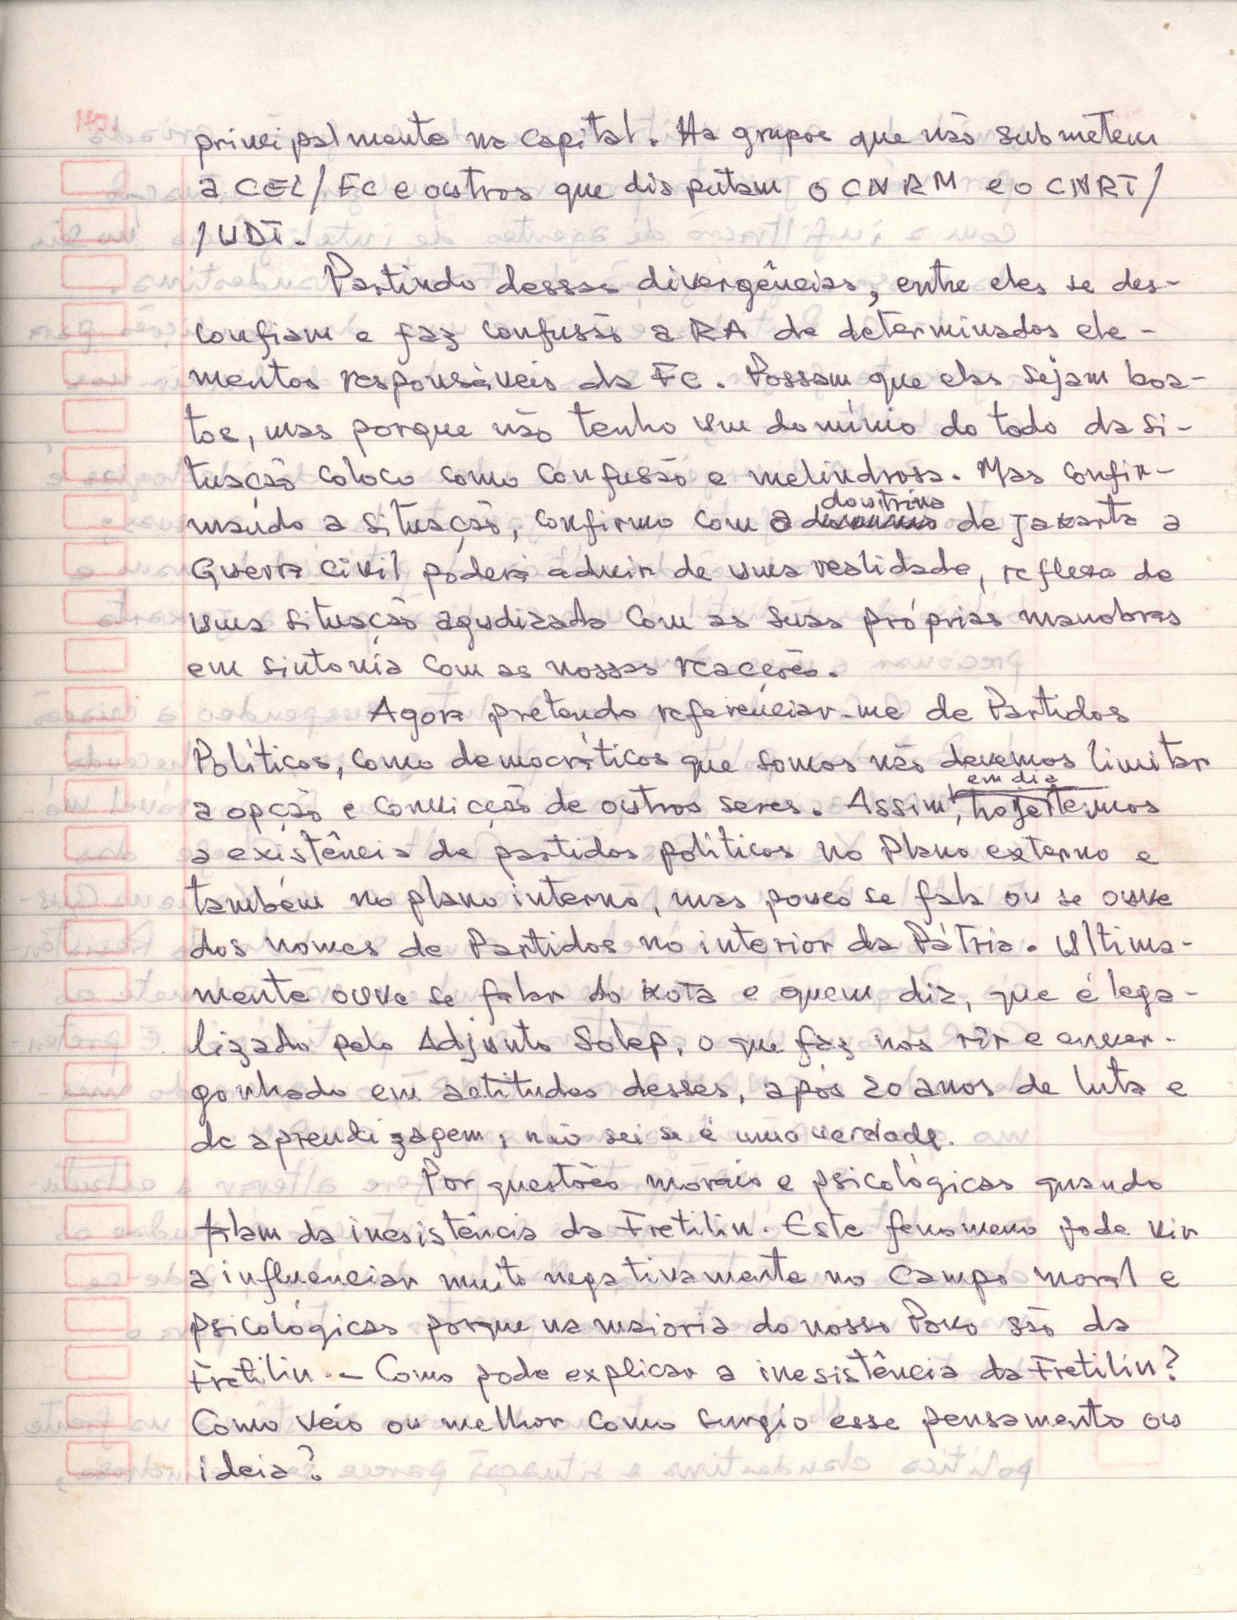 principalmente na Capital. Ha grupos que não submetem
a CEL/FC e outros que disputam o CNRM e o CNRT/
/UDT.
Partindo dessas divergências, entre eles se des-
confiam e faz confusão a RA de determinados ele-
mentos responsáveis da FC. Possam que elas sejam boa-
tos, mas porque não tenho um domínio do todo da si-
tuação coloco como confusão e melindrosa. Mas confir-
mando a situação, confirmo com a doutrina de Jakarta a
Guerra civil poderá advir de uma realidade, reflexo de
uma situação agudizada com as suas próprias manobras
em sintonia com as nossas reacções.
Agora pretendo referênciar-me de Partidos
Políticos, como democráticos que somos não devemos limitar
a opção e convicção de outros seres. Assim, hoje em dia temos
a existência de partidos políticos no Plano externo e
também no plano interno, mas pouco se fala ou se ouve
dos nomes de Partidos no interior da Pátria. Ultima-
mente ouve se falar do Kota e quem diz, que é lega-
lizado pelo Adjunto Solep, o que faz nos rir e enver-
gonhado em actitudes desses, após 20 anos de luta e
de aprendizagem, não sei se é uma verdade.
Por questões morais e psicológicas quando
falam da inesistência da Fretilin. Este fenomeno pode vir
a influênciar muito negativamente no Campo moral e
psicológicas porque na maioria do nosso Povo são da
Fretilin. - Como pode explicar a inesistência da Fretilin?
Como veio ou melhor como surgio esse pensamento ou
ideia?